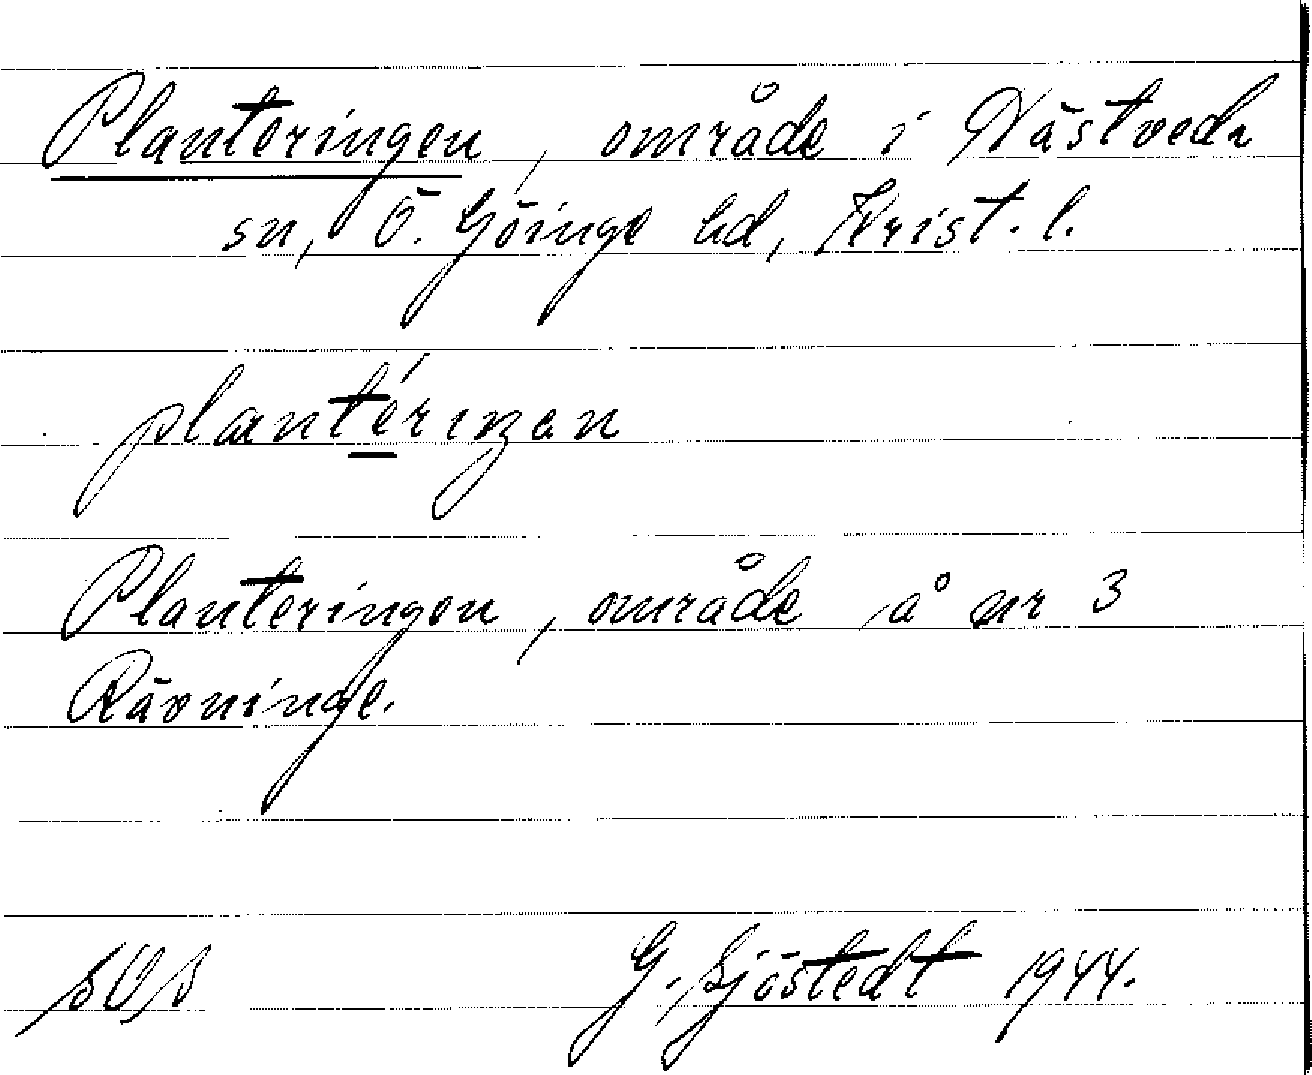 Planteringen, område i Västveda
sn, Ö. Göinge hd, Krist. l.
plantériŋen
Planteringen, område å nr 3
Rävninge.
SOS G. Sjöstedt 1944.